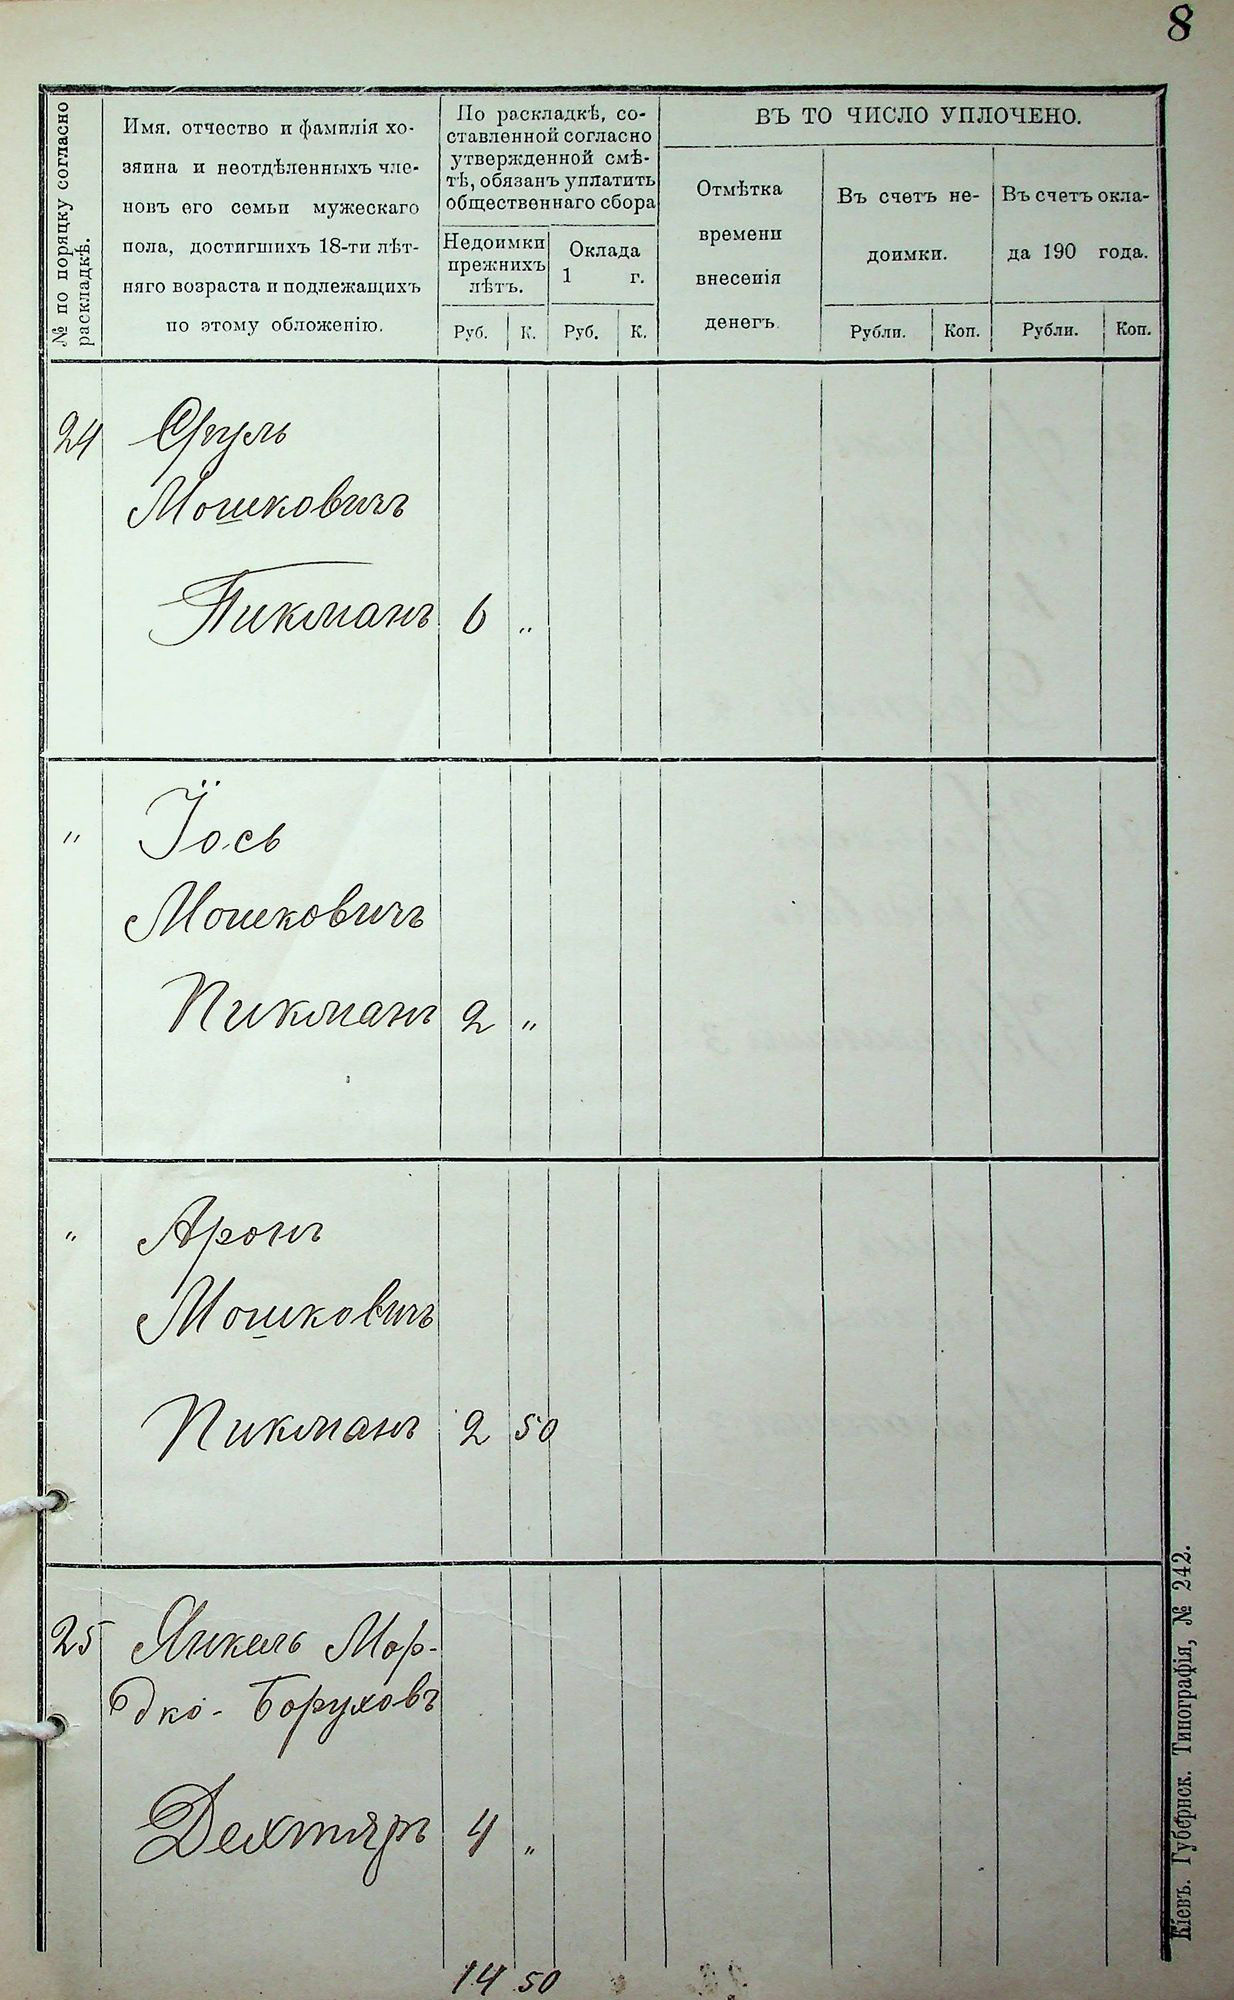 8
№ по поряцку согласно
раскладкѣ.
Имя, отчество и фамилія хо-
зяина и неотдѣленныхъ чле-
новъ его семьи мужескаго
пола, достигшихъ 18-ти лѣт-
няго возраста и подлежащихъ
по этому обложенію.
По раскладкѣ, со-
ставленной согласно
утвержденной смѣ-
тѣ, обязанъ уплатить
общественнаго сбора
Недоимки
прежнихъ
лѣтъ.
Оклада
1 г.
Руб. К. Руб. К.
ВЪ ТО ЧИСЛО УПЛОЧЕНО.
Отмѣтка
времени
внесенія
денегъ
Въ счетъ не-
доимки.
Въ счетъ окла-
да 190 года.
Рубли. Коп. Рубли. Коп.
24 Сруль
Мошковичъ
Пикманъ 6 „
„ Іось
Мошковичъ
Пикманъ 2 „
„ Аронъ
Мошковичъ
Пикманъ 2 50
25 Янкель Мор-
дко-Боруховъ
Дехтяръ 4 „
14 50
Кіевъ. Губернск. Типографія, № 242.